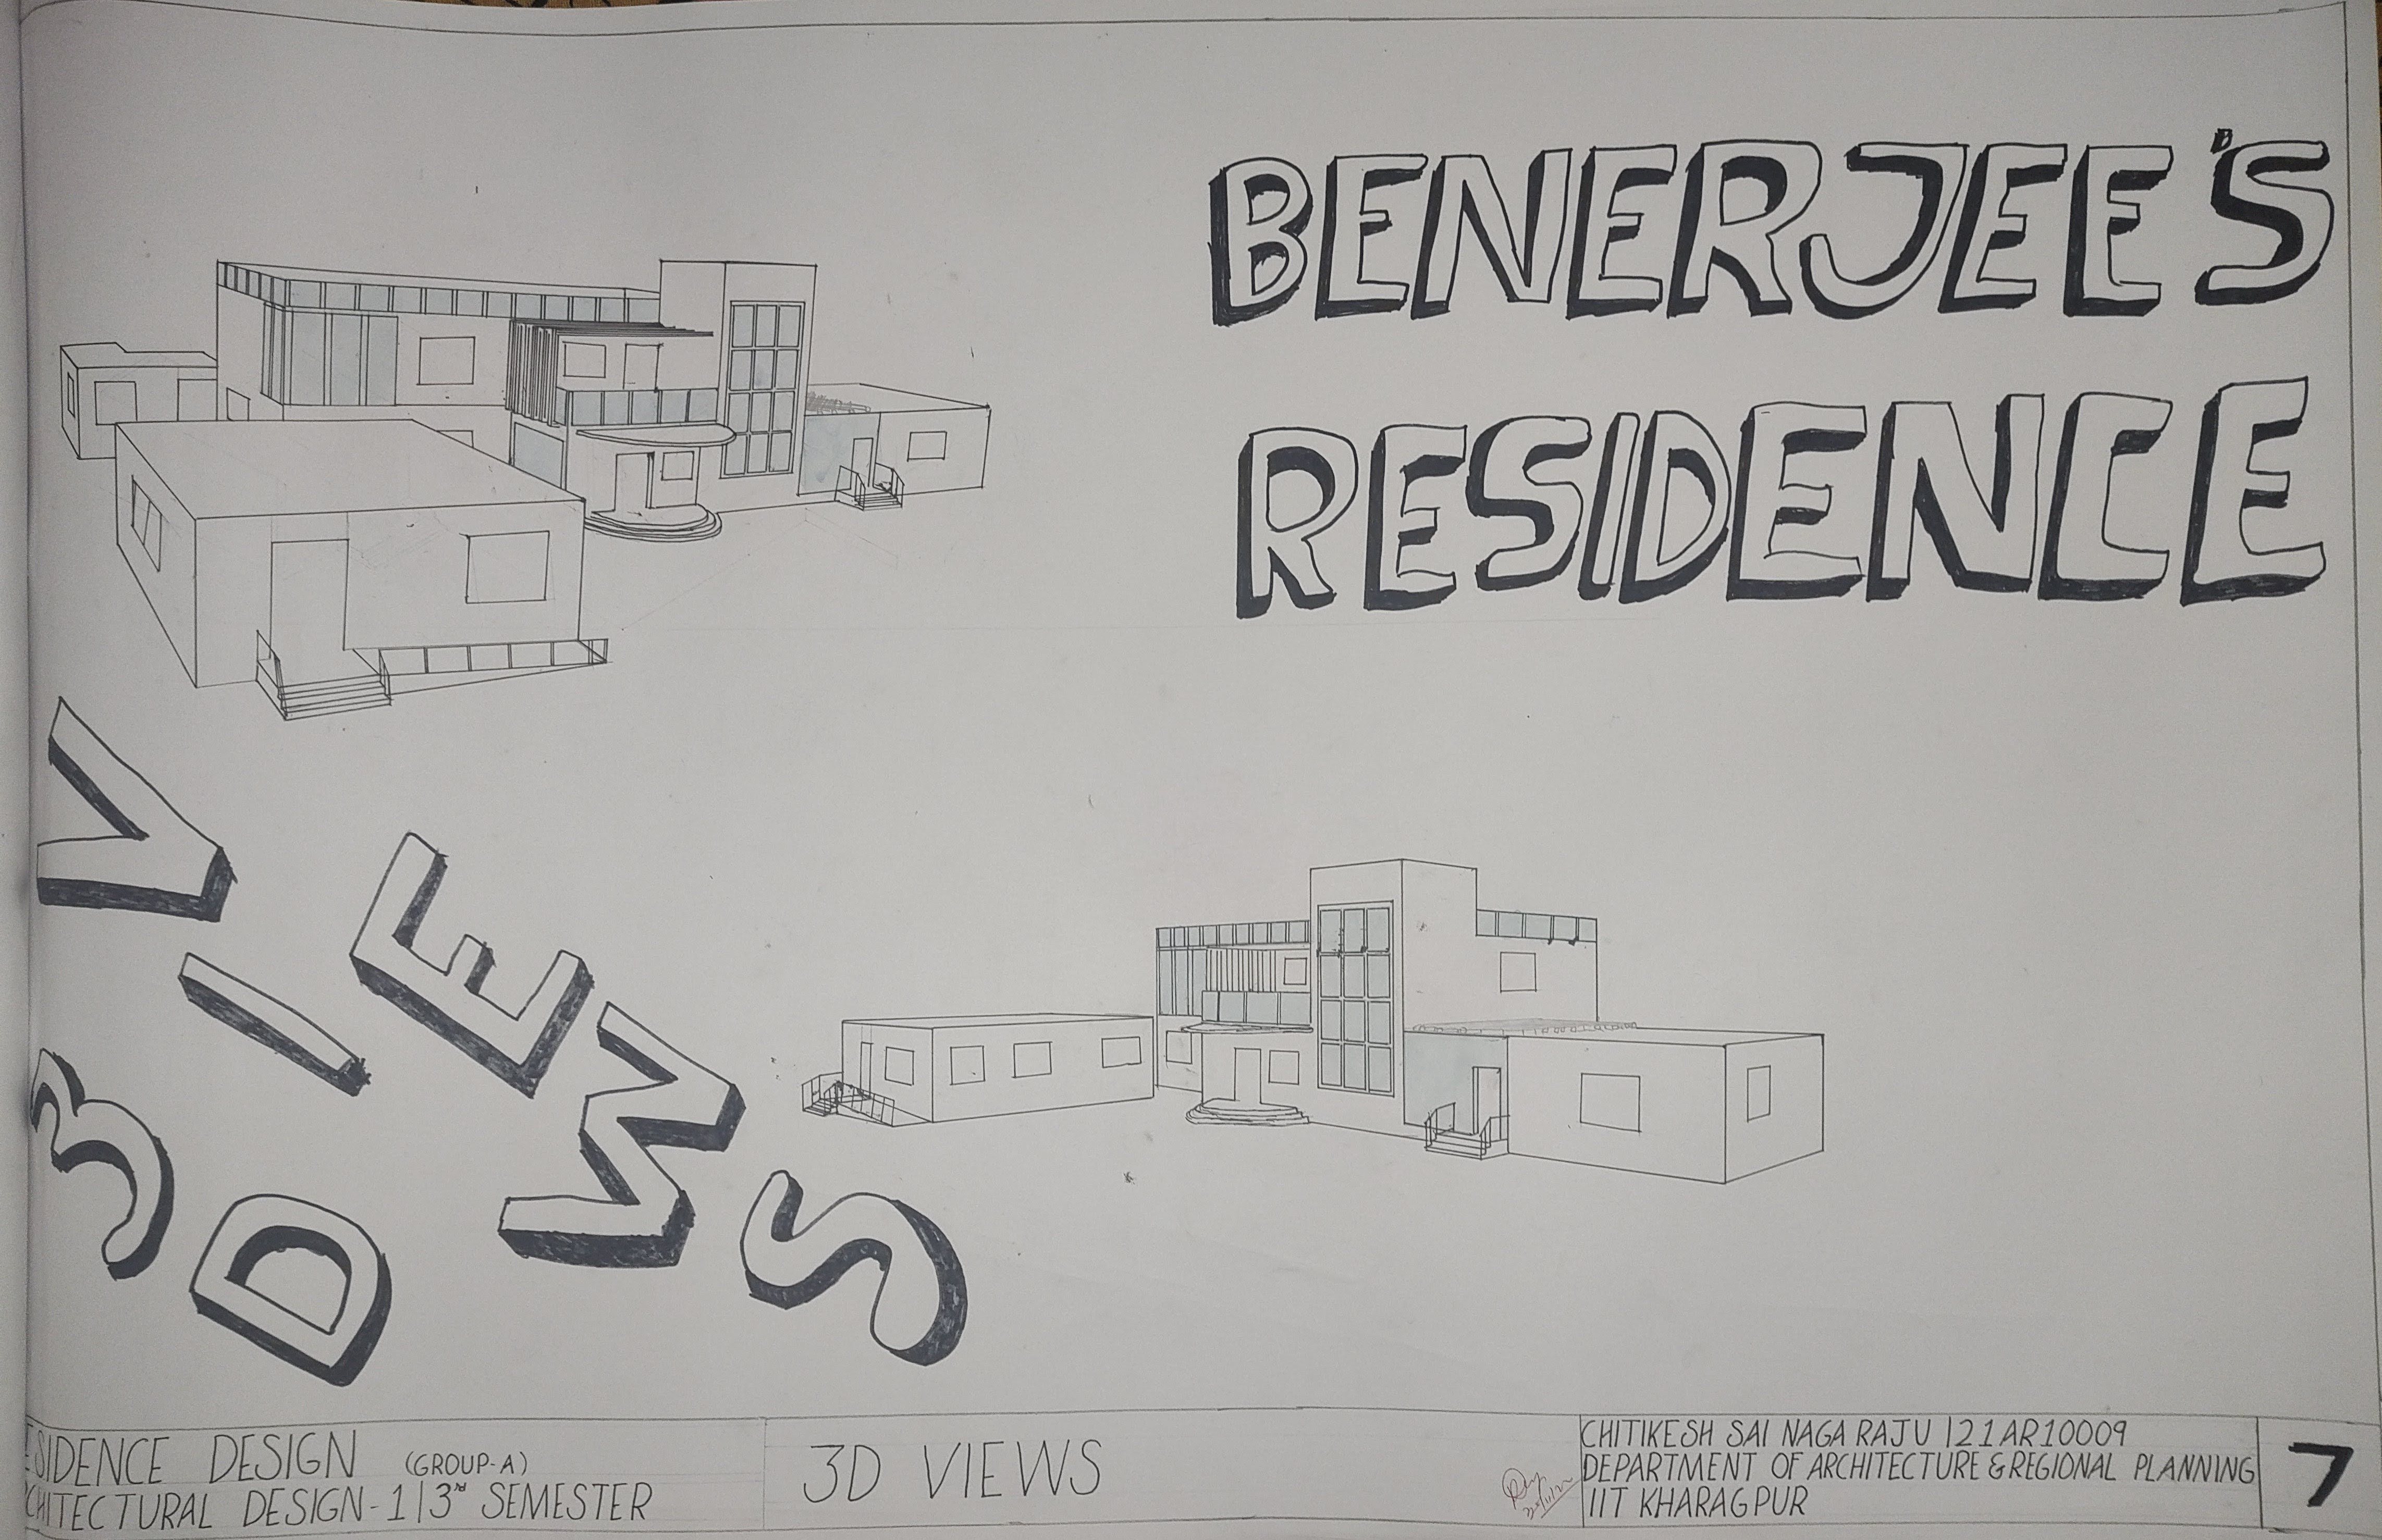 BENERJEE'S
RESIDENCE
3D
VIEWS
ESIDENCE DESIGN (GROUP-A)
CHITECTURAL DESIGN-1|3rd SEMESTER
3D VIEWS
CHITIKESH SAI NAGA RAJU |21AR10009
DEPARTMENT OF ARCHITECTURE & REGIONAL PLANNING
IIT KHARAGPUR
7